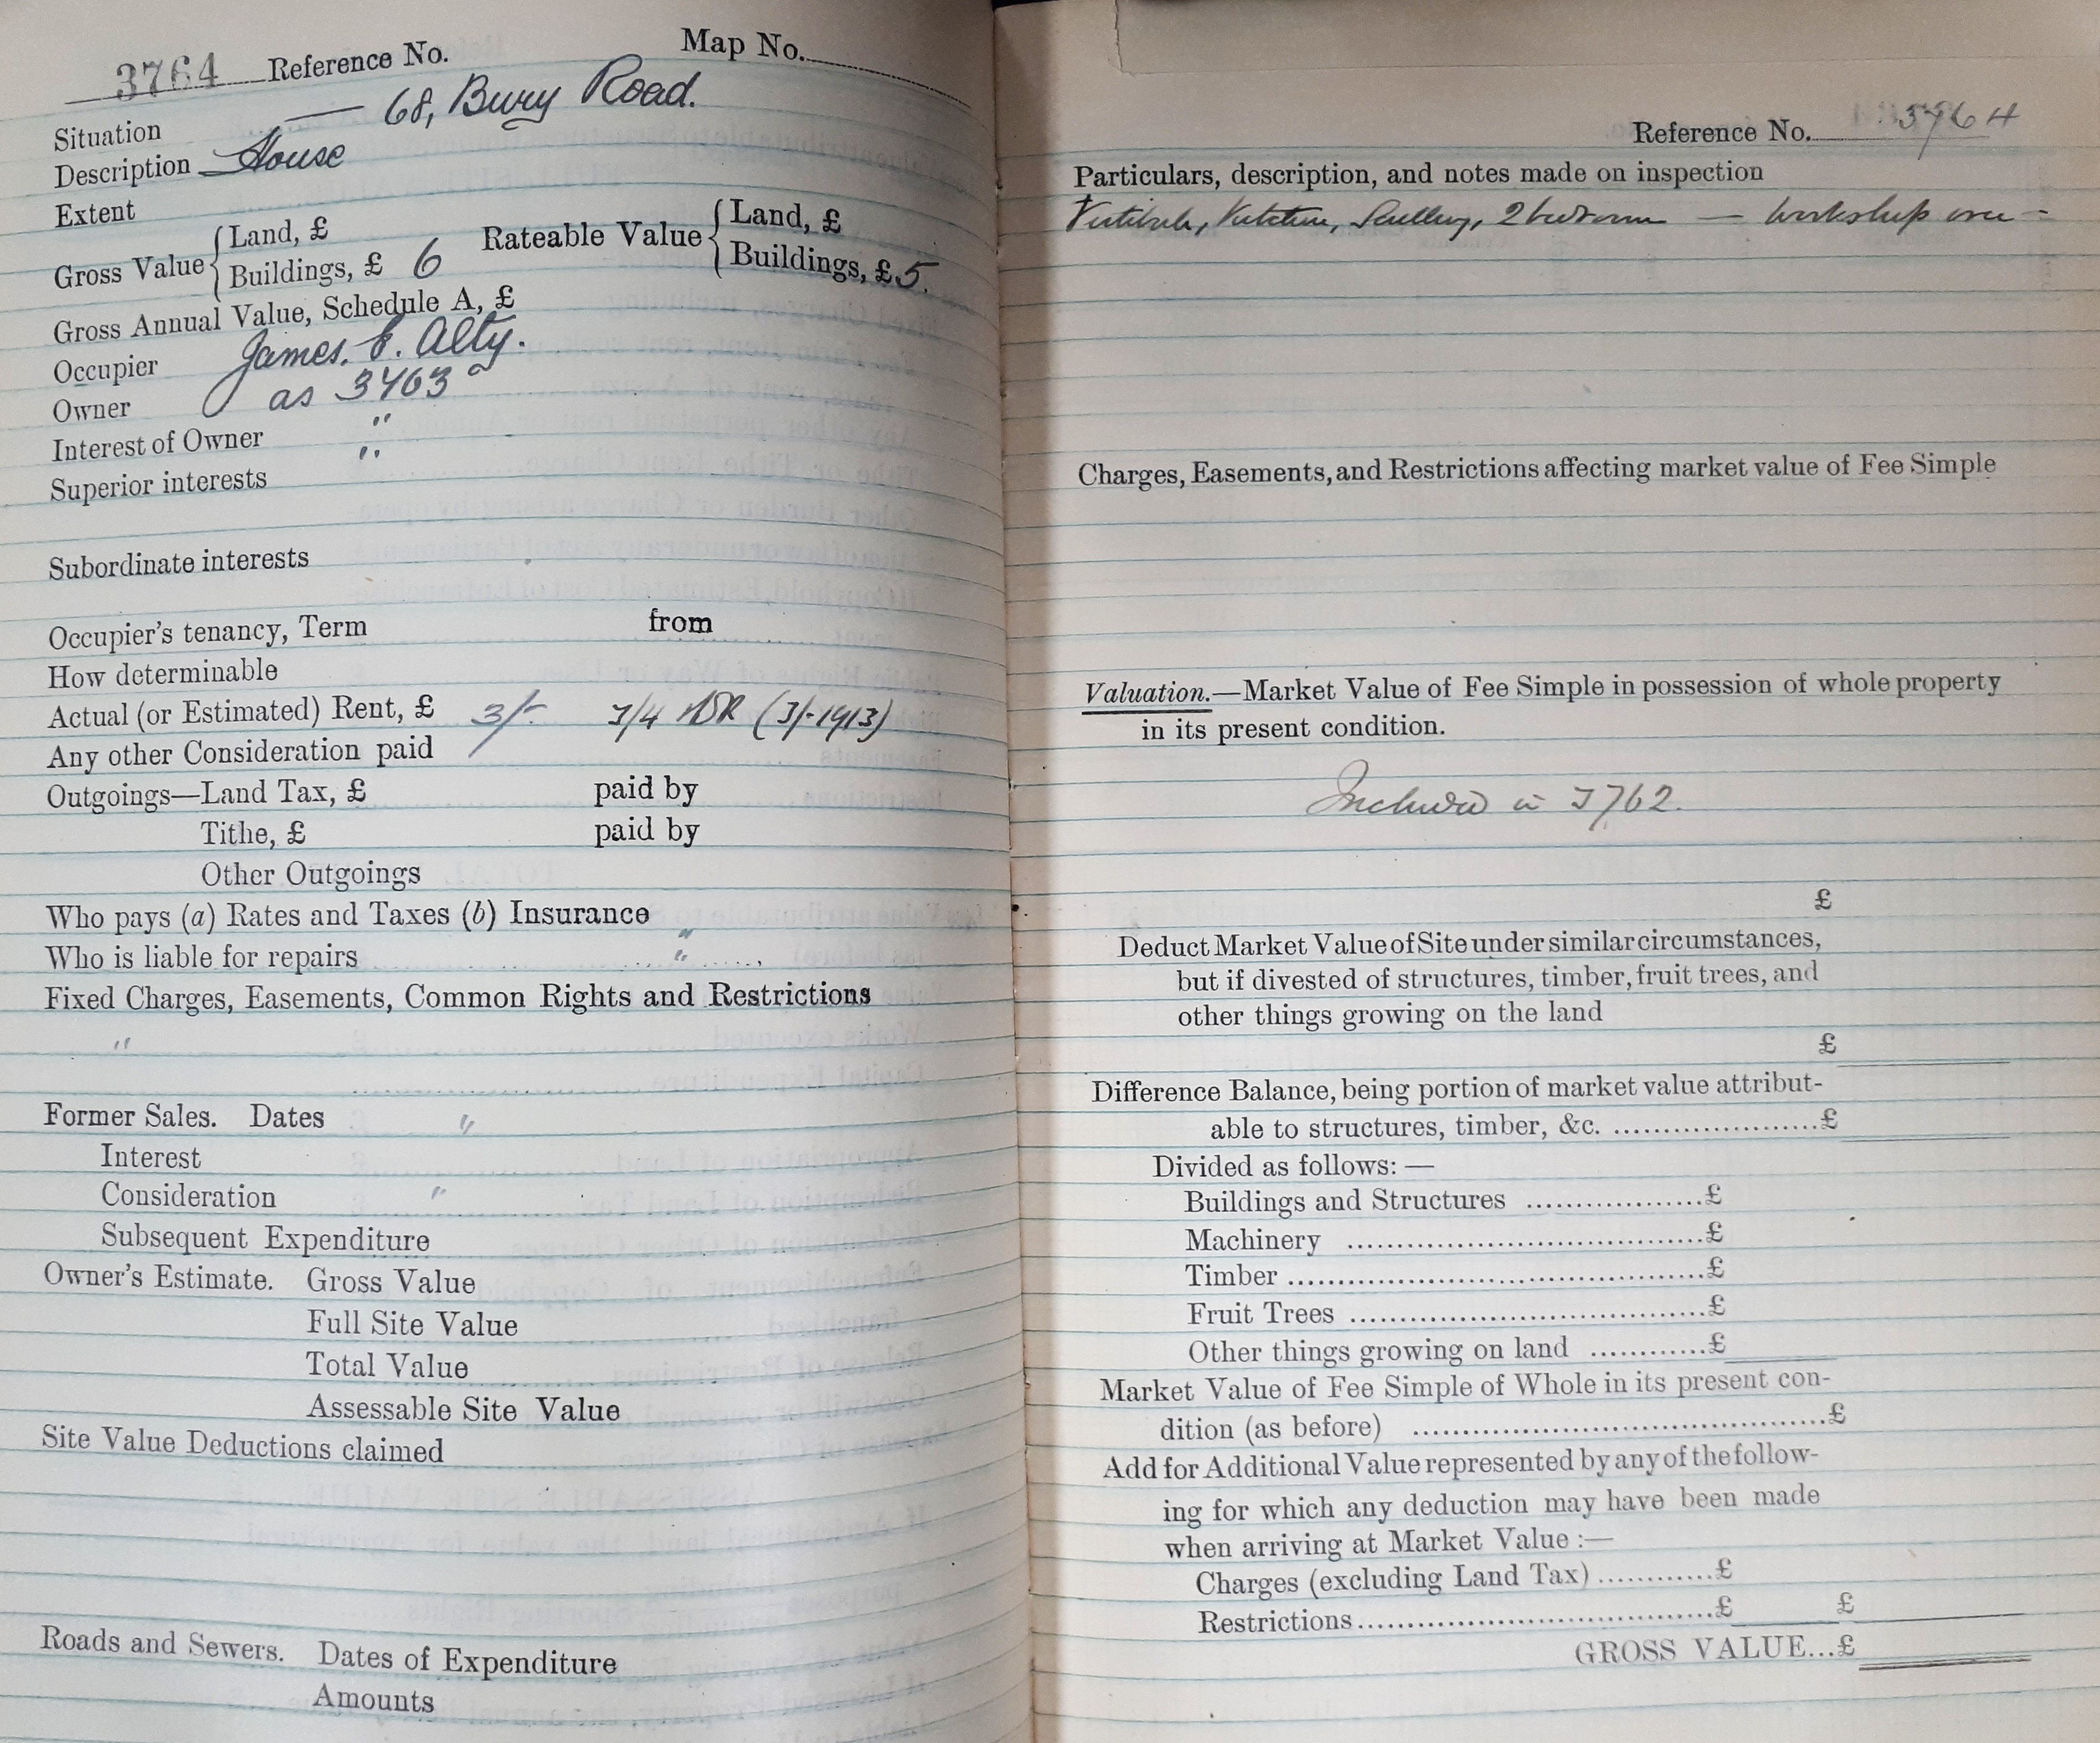 3764 Reference No. Map No.
Situation — 68, Bury Road.
Description House
Extent
Gross Value { Land, £ Rateable Value { Land, £
Buildings, £ 6 Buildings, £ 5.
Gross Annual Value, Schedule A, £
Occupier James. E. Alty.
Owner as 3763
Interest of Owner "
Superior interests "
Subordinate interests
Occupier's tenancy, Term from
How determinable
Actual (or Estimated) Rent, £ 3/- 3/4 (3/- 1913)
Any other Consideration paid
Outgoings—Land Tax, £ paid by
Tithe, £ paid by
Other Outgoings
Who pays (a) Rates and Taxes (b) Insurance "
Who is liable for repairs "
Fixed Charges, Easements, Common Rights and Restrictions
"
Former Sales. Dates "
Interest
Consideration "
Subsequent Expenditure
Owner's Estimate. Gross Value
Full Site Value
Total Value
Assessable Site Value
Site Value Deductions claimed
Roads and Sewers. Dates of Expenditure
Amounts
Reference No. 3764
Particulars, description, and notes made on inspection
Vestibule, Kitchen, Scullery, 2 bedrooms — workshop over –
Charges, Easements, and Restrictions affecting market value of Fee Simple
Valuation.—Market Value of Fee Simple in possession of whole property
in its present condition.
Included in 3762.
£
Deduct Market Value of Site under similar circumstances,
but if divested of structures, timber, fruit trees, and
other things growing on the land
£
Difference Balance, being portion of market value attribut-
able to structures, timber, &c. ......................£
Divided as follows: —
Buildings and Structures ...................£
Machinery ......................................£
Timber ............................................£
Fruit Trees ......................................£
Other things growing on land ............£
Market Value of Fee Simple of Whole in its present con-
dition (as before) ............................................£
Add for Additional Value represented by any of the follow-
ing for which any deduction may have been made
when arriving at Market Value :—
Charges (excluding Land Tax) ............£
Restrictions ......................................£ £
GROSS VALUE...£